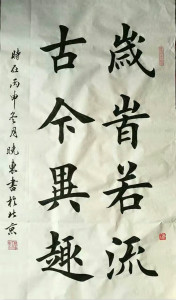 歲旹若流
古今異趣
時在丙申冬月曉東書於北京